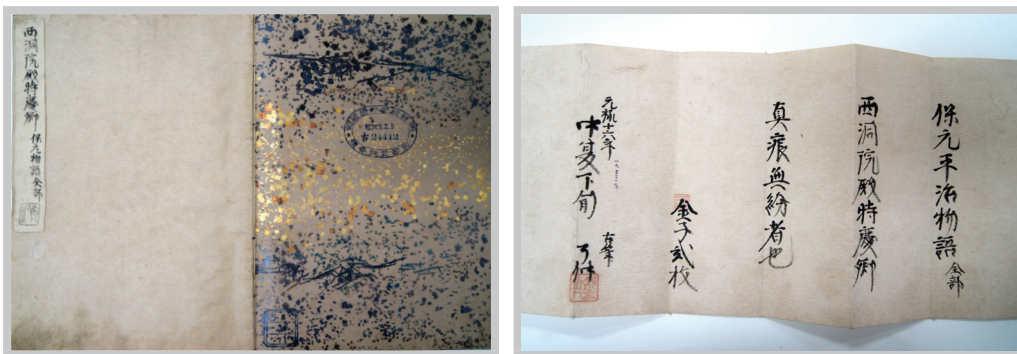 西洞院殿時慶卿 保元物語全部
古24412
保元平治物語 全部
西洞院殿時慶卿
真痕無紛者也
金子弐枚
元禄十六年
中夏下旬 古筆
了仲